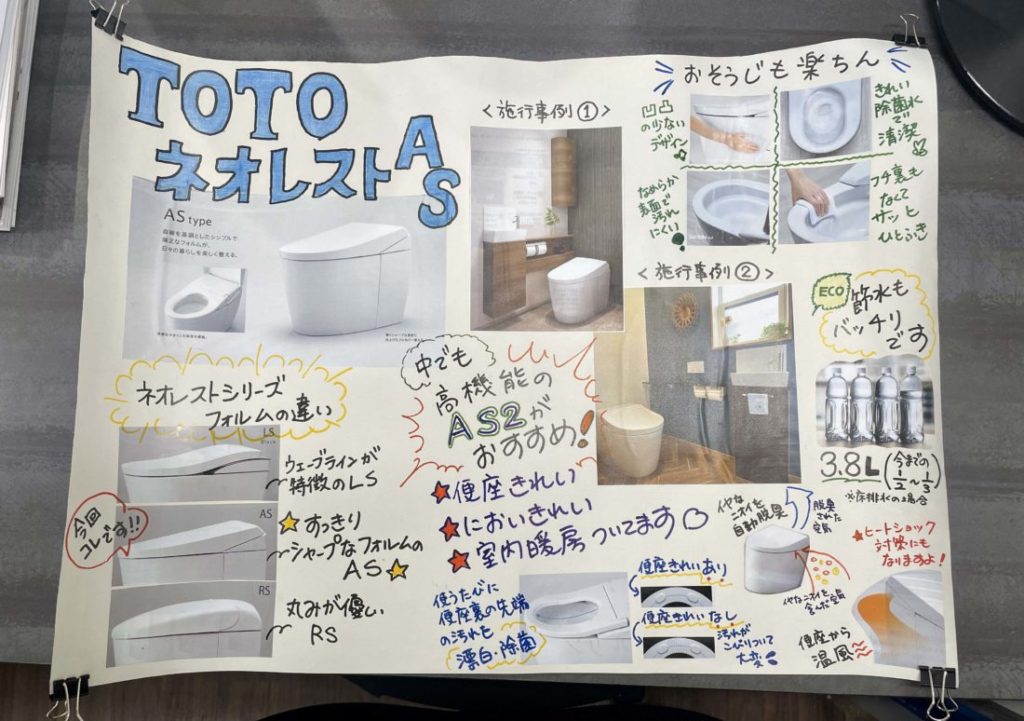 TOTO
ネオレスト AS
AS type
曲線を基調としたシンプルで
端正なフォルムが、
日々の暮らしを美しく整える。
ネオレストシリーズ
フォルムの違い
LS
ウェーブラインが
特徴のLS
今回
コレです!!
AS
すっきり
シャープなフォルムの
AS
RS
丸みが優しい
RS
<施行事例①>
<施行事例②>
中でも
高機能の
AS2が
おすすめ!
便座きれい
においきれい
室内暖房ついてます
使うたびに
便座裏の先端
の汚れも
漂白・除菌
便座きれいあり
便座きれいなし
汚れが
こびりついて
大変
おそうじも楽ちん
凹凸
の少ない
デザイン
きれい
除菌水
で
清潔
なめらか
表面で
汚れ
にくい
フチ裏も
なくて
サッと
ひとふき
ECO
節水も
バッチリ
です
3.8L(今までの
1/2~1/3)
※床排水の場合
イヤな
ニオイを
自動脱臭
脱臭
された
空気
イヤなニオイを
含んだ空気
ヒートショック
対策にも
なりますよ!
便座から
温風